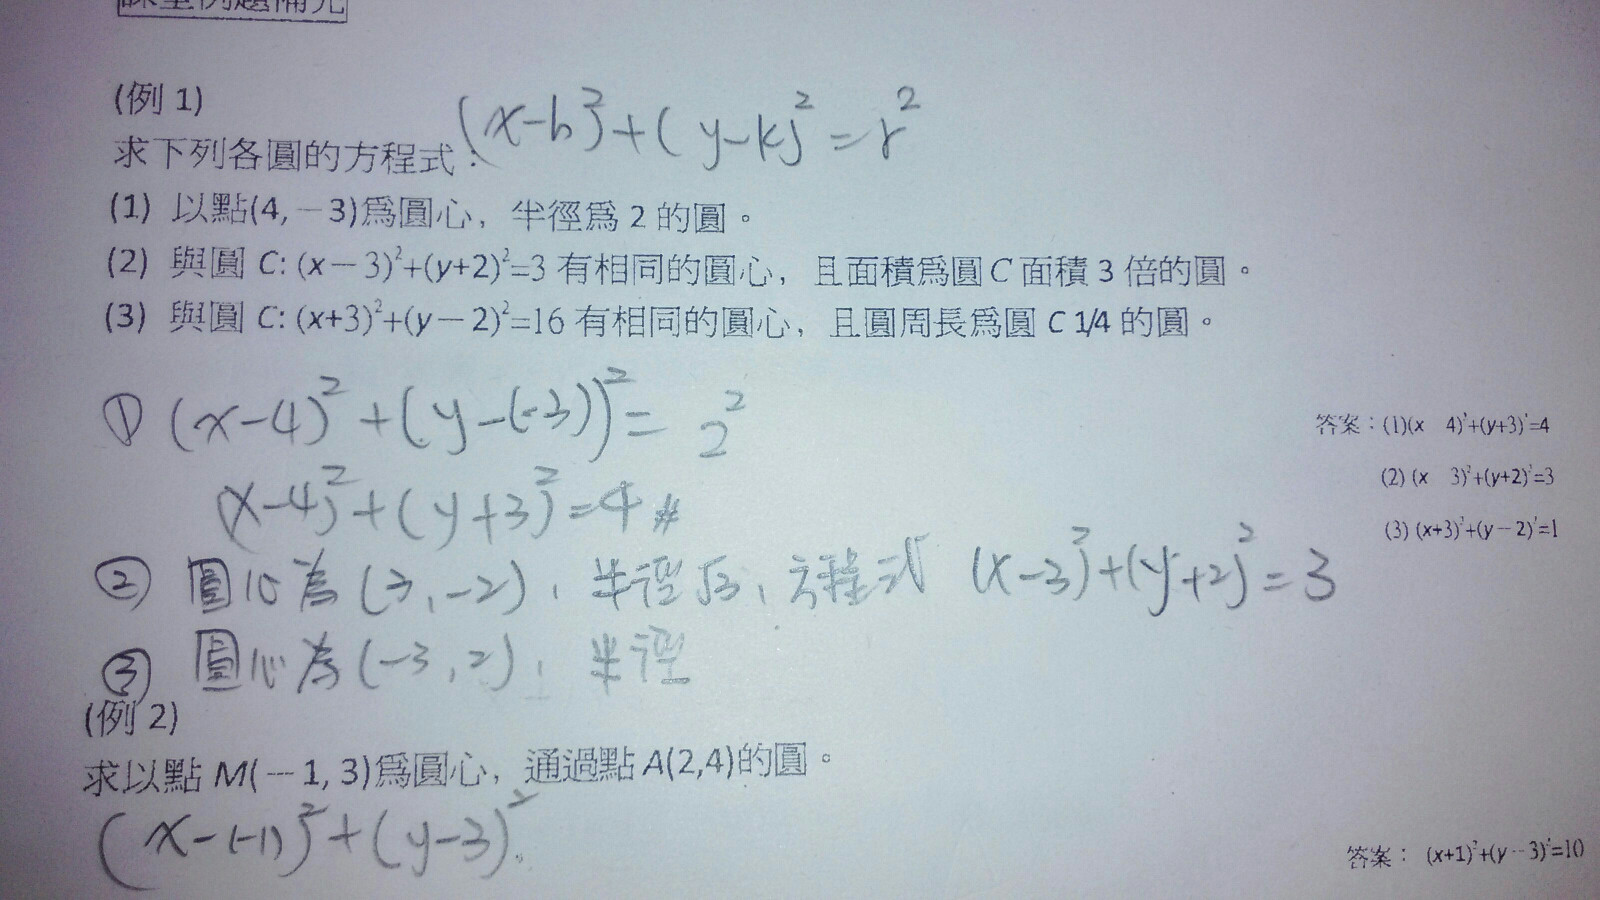 課堂例題補充
(例 1)
(x-h)²+(y-k)²=r²
求下列各圓的方程式：
(1) 以點(4,－3)為圓心，半徑為 2 的圓。
(2) 與圓 C: (x－3)²+(y+2)²=3 有相同的圓心，且面積為圓 C 面積 3 倍的圓。
(3) 與圓 C: (x+3)²+(y－2)²=16 有相同的圓心，且圓周長為圓 C 1/4 的圓。
① (x-4)²+(y-(-3))²= 2²
答案：(1)(x 4)²+(y+3)²=4
(2) (x 3)²+(y+2)²=3
(x-4)²+(y+3)²=4 #
(3) (x+3)²+(y－2)²=1
② 圓心為(3,-2)，半徑√3，方程式 (x-3)²+(y+2)²=3
③ 圓心為(-3,2)，半徑
(例 2)
求以點 M(－1, 3)為圓心，通過點 A(2,4)的圓。
(x-(-1))²+(y-3)²
答案： (x+1)²+(y－3)²=10